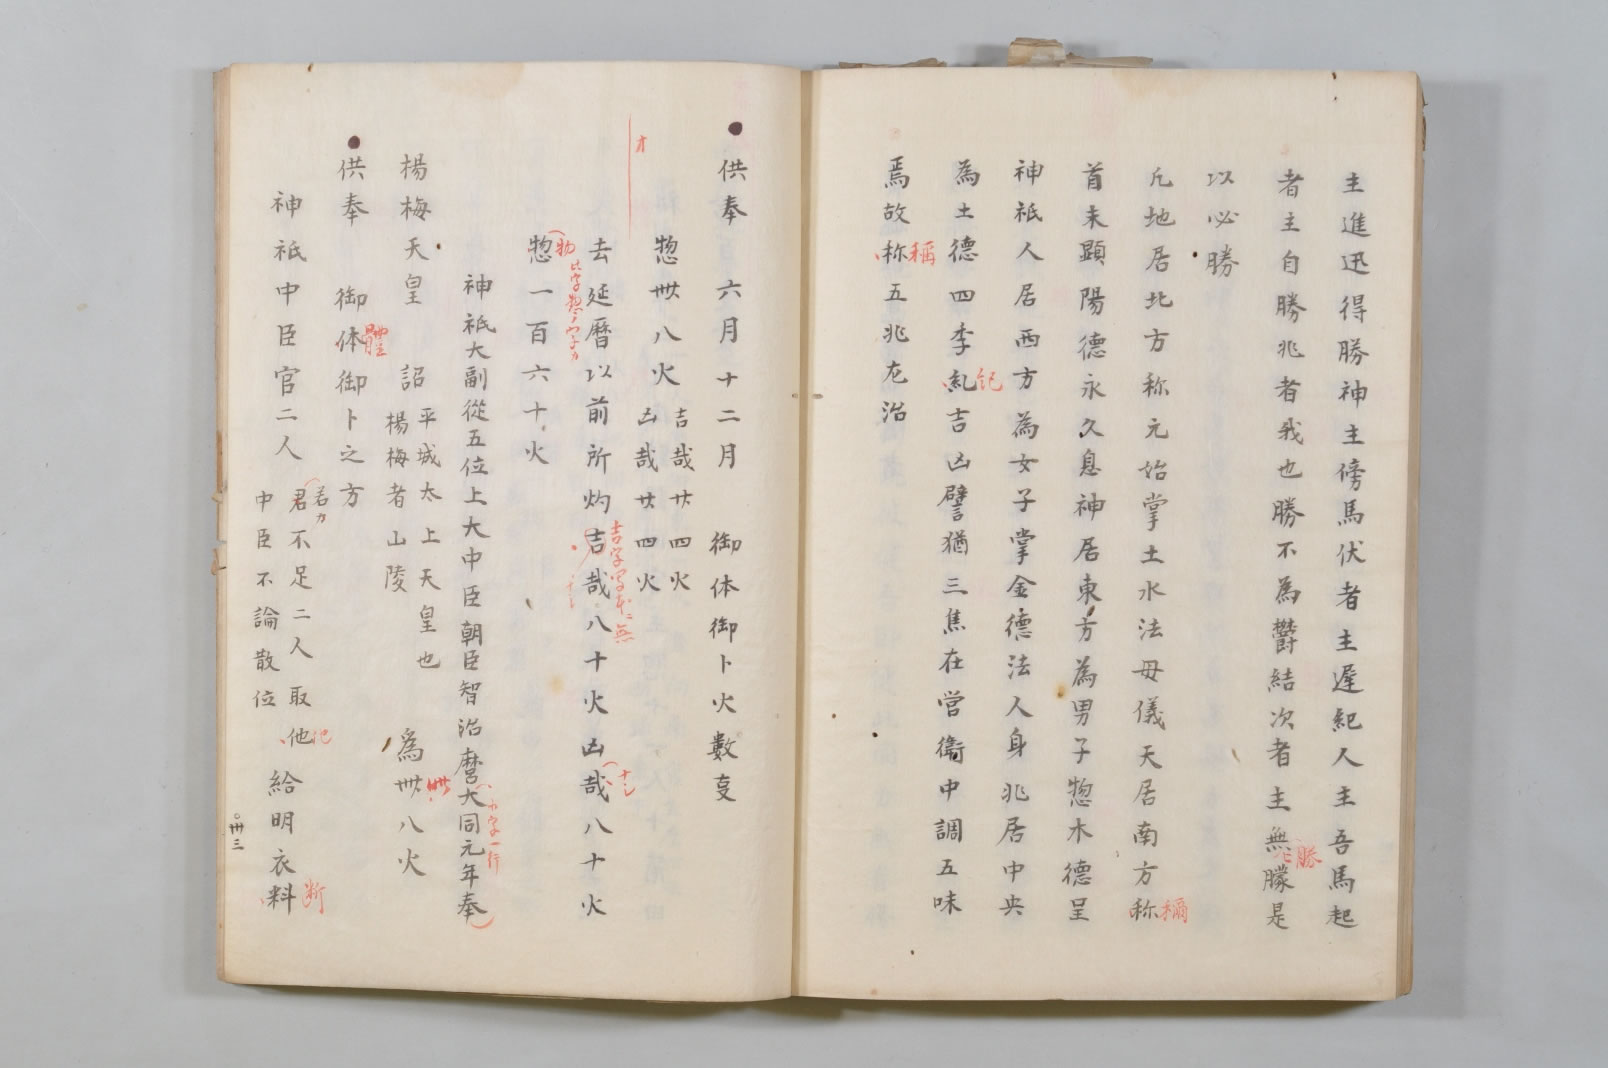 主進迅得勝神主傍馬伏者主遅紀人主吾馬起
者主自勝兆者我也勝不為欝結次者主無朦是
勝
以必勝
凡地居北方称元始掌土水法母儀天居南方称
稱
首未顕陽徳永久息神居東方為男子惣木徳呈
神祇人居西方為女子掌金徳法人身兆居中央
為土徳四季乱吉凶譬猶三焦在営衛中調五味
焉故称五兆尨治
稱
供奉 六月十二月 御体御卜火数亥
オ
惣卌八火 吉哉廿四火
凶哉廿四火
去延暦以前所灼吉哉八十火凶哉八十火
吉字写本ニ無
惣一百六十火
此字惣ノ字カ
神祇大副従五位上大中臣朝臣智治麿大同元年奉
小字一行
楊梅天皇 詔 平城太上天皇也
楊梅者山陵 為卌八火
卌
供奉 御体御卜之方
體
神祇中臣官二人 君不足二人取他
中臣不論散位 給明衣料
若カ
断
卌三